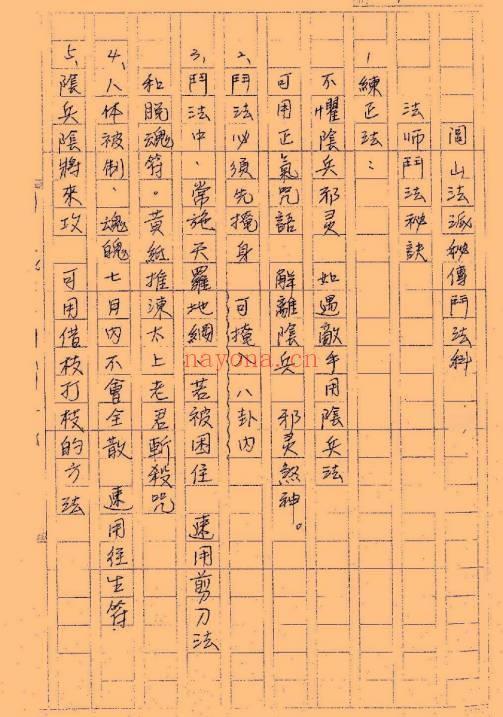 閭山法派秘傳鬥法科
法師鬥法秘訣
1、練正法：
不懼陰兵邪灵 如遇敵手用陰兵法
可用正氣咒語 解離陰兵 邪灵煞神。
2、鬥法必須先掩身 可掩入八卦内
3、鬥法中、常施天羅地網 若被困住 速用剪刀法
和脱魂符。黃紙推涷太上老君斬殺咒
4、人体被制、魂魄七月内不會全散 速用往生符
5、陰兵陰將來攻 可用借枝打枝的方法
nayona.cn